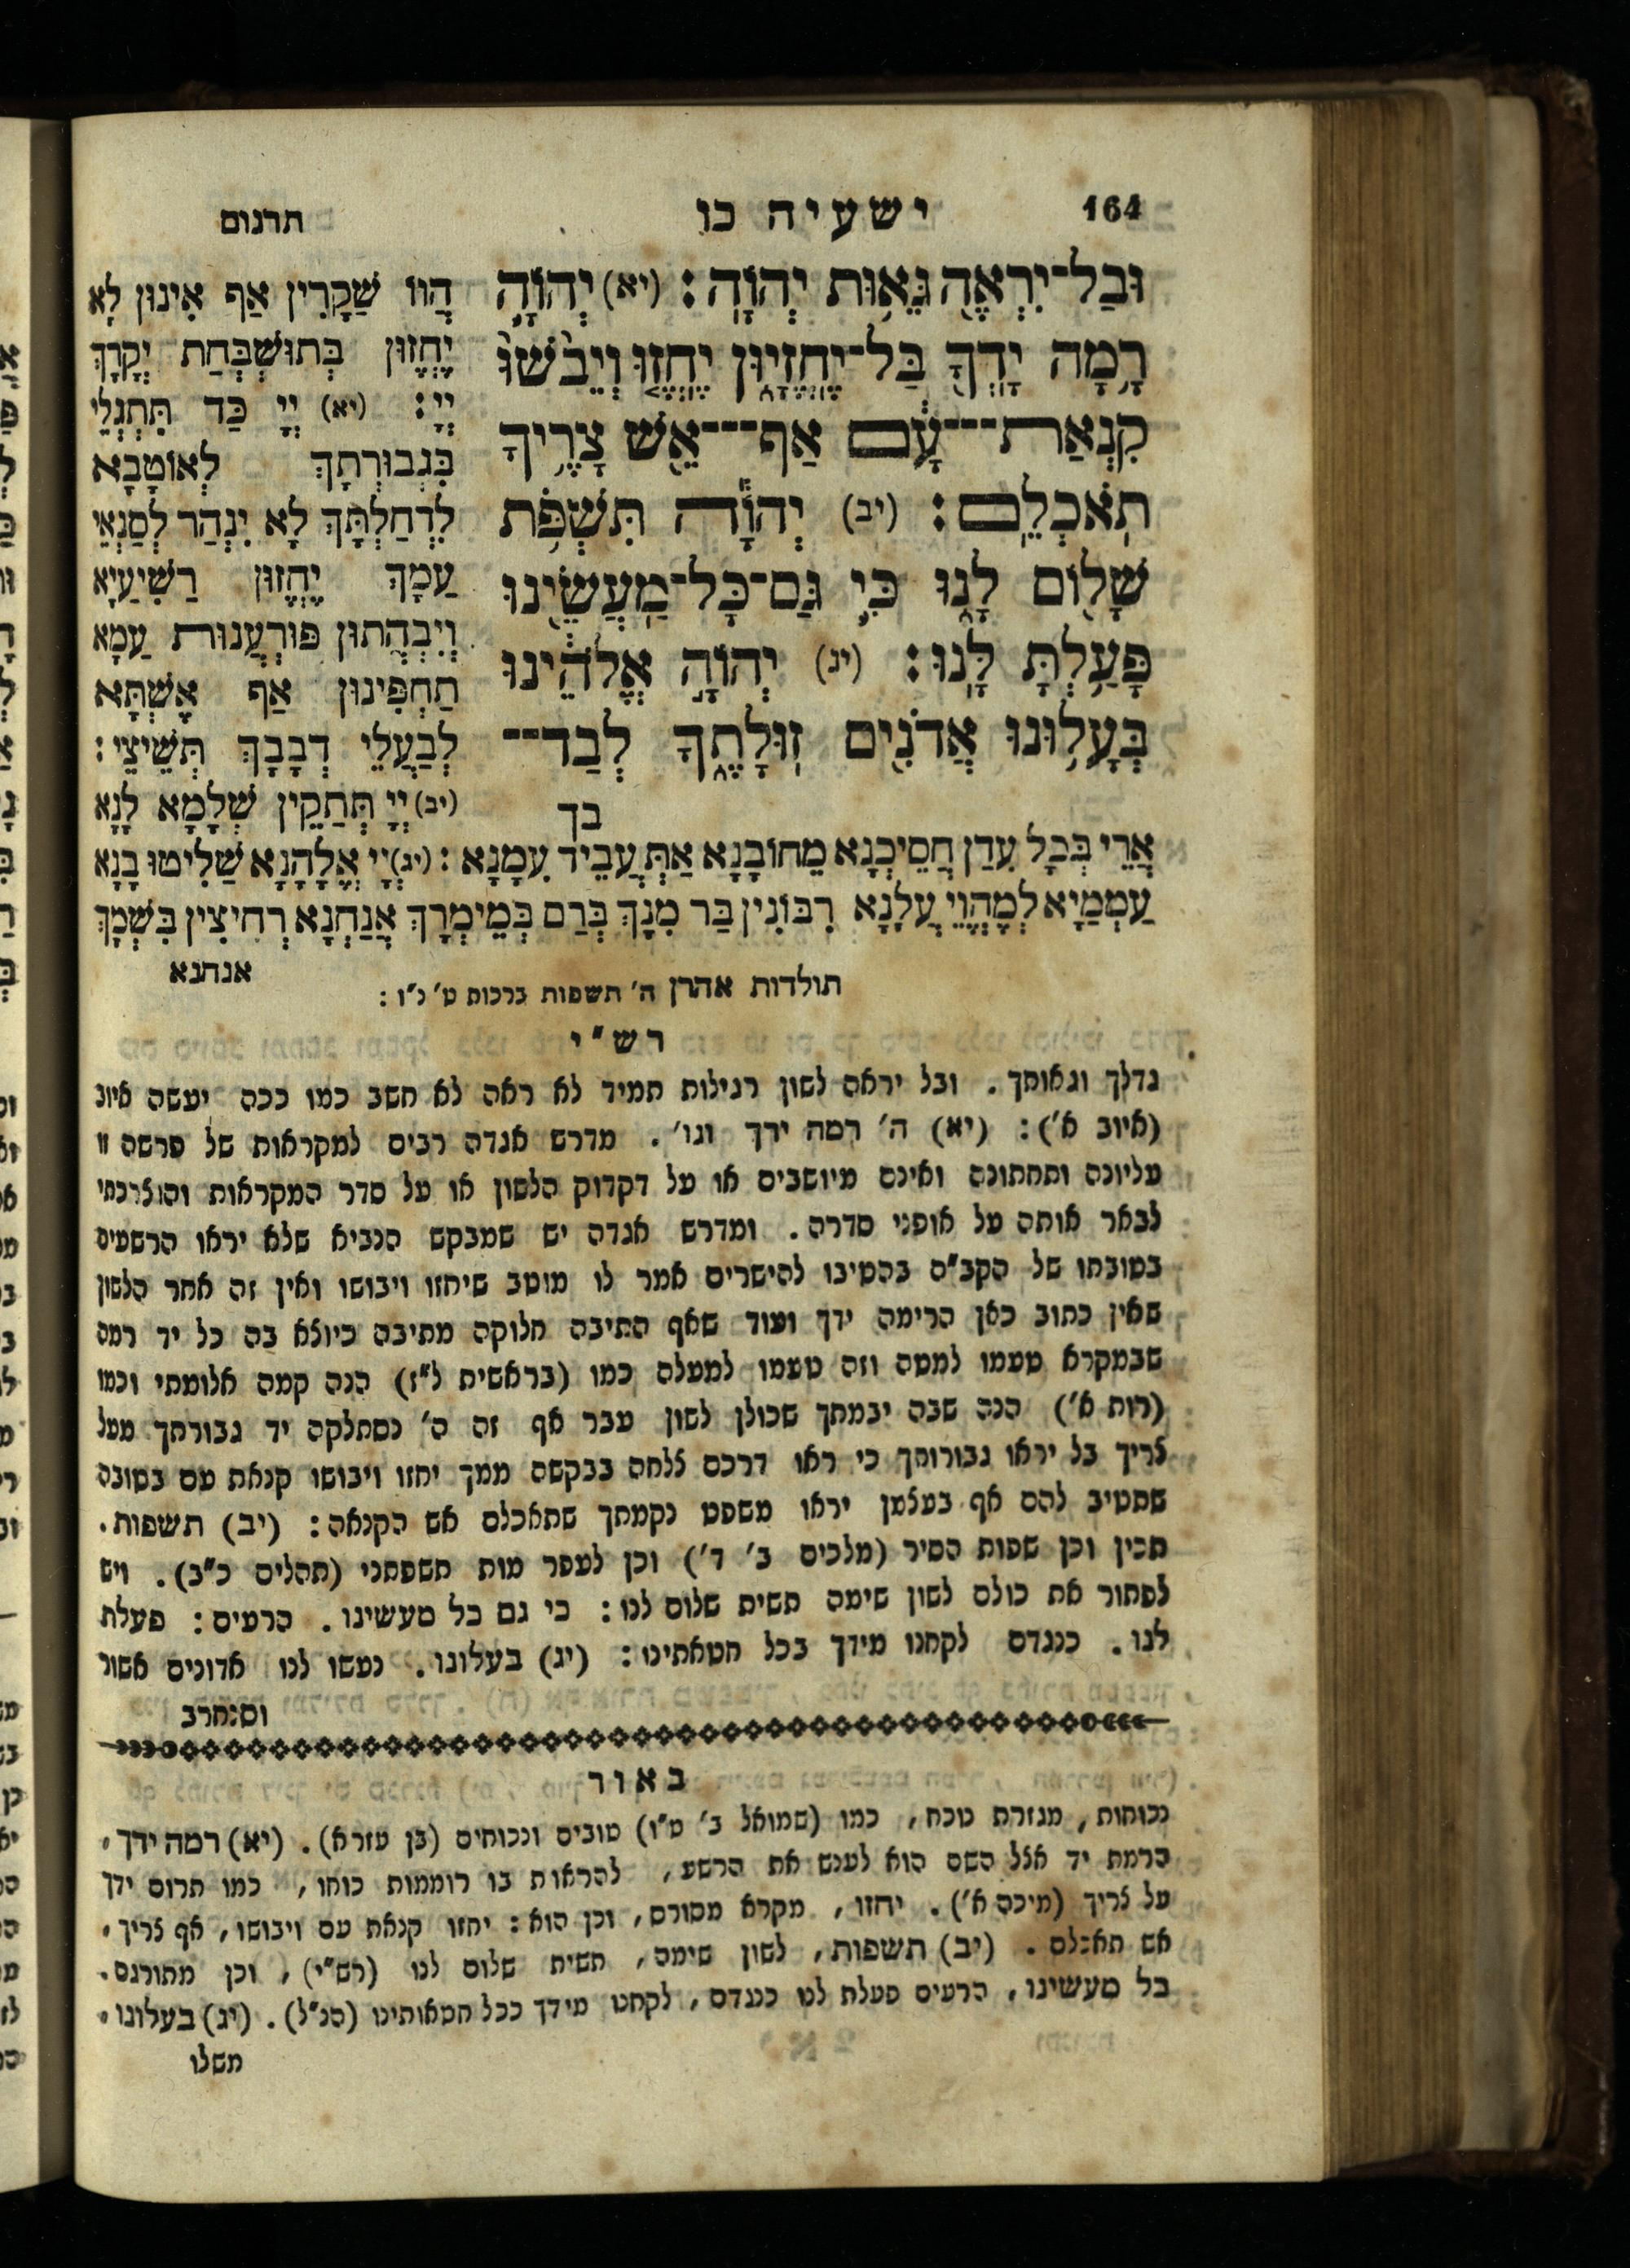 164
ישעיה כו
תרגום
וּבַל־יִרְאֶ֖ה גֵּא֥וּת יְהוָֽה׃ (יא) יְהוָ֛ה
רָ֥מָה יָדְךָ֖ בַּל־יֶחֱזָי֑וּן יֶחֱז֤וּ וְיֵבֹ֙שׁוּ֙
קִנְאַת־־־עָ֔ם אַף־־־אֵ֖שׁ צָרֶ֥יךָ
תֹאכְלֵֽם׃ (יב) יְהוָ֕ה תִּשְׁפֹּ֥ת
שָׁל֖וֹם לָ֑נוּ כִּ֛י גַּם־כָּל־מַֽעֲשֵׂ֖ינוּ
פָּעַ֥לְתָּ לָּֽנוּ׃ (יג) יְהוָ֣ה אֱלֹהֵ֔ינוּ
בְּעָל֥וּנוּ אֲדֹנִ֖ים זֽוּלָתֶ֑ךָ לְבַד־־
בך
הֲווֹ שַׁקָרִין אַף אִינוּן לָא
יֶחֱזוּן בְּתוּשְׁבְּחַת יְקָרָךְ
יְיָ׃ (יא) יְיָ כַּד תִּתְגְלֵי
בִּגְבוּרְתָךְ לְאוֹטָבָא
לְדַחַלְתָּךְ לָא יִנְהַר לְסַנְאֵי
עַמָךְ יֶחֱזוּן רַשִׁיעַיָא
וְיִבְהֲתוּן פּוּרְעֲנוּת עַמָא
תַחְפִּינוּן אַף אֶשְׁתָּא
לְבַעֲלֵי דְבָבָךְ תְּשֵׁיצֵי׃
(יב) יְיָ תְּתַקֵין שְׁלָמָא לָנָא
אֲרֵי בְּכָל עִדַן חֲסֵיכְנָא מֵחוֹבָנָא אַתְּ עֲבֵיד עִמָנָא׃ (יג) יְיָ אֱלָהָנָא שַׁלִיטוּ בָנָא
עַמְמַיָא לְמֶהֱוֵי עֲלָנָא רִבּוֹנִין בַּר מִנָךְ בְּרַם בְּמֵימְרָךְ אֲנַחְנָא רְחִיצִין בִּשְׁמָךְ
אנחנא
תולדות אהרן ה׳ תשפות ברכות ט׳ נ״ו :
רש״י
גדלך וגאותך. ובל יראה לשון רגילות תמיד לא ראה לא חשב כמו ככה יעשה איוב
(איוב א׳): (יא) ה׳ רמה ידך וגו׳. מדרש אגדה רבים למקראות של פרשה זו
עליונה ותחתונה ואינם מיושבים או על דקדוק הלשון או על סדר המקראות והוצרכתי
לבאר אותה על אופני סדרה. ומדרש אגדה יש שמבקש הנביא שלא יראו הרשעים
בטובתו של הקב״ה בהטיבו להישרים אמר לו מוטב שיחזו ויבושו ואין זה אחר הלשון
שאין כתוב כאן הרימה ידך ועוד שאף התיבה חלוקה מתיבה כיוצא בה כל יד רמה
שבמקרא טעמו למטה וזה טעמו למעלה כמו (בראשית ל״ז) הנה קמה אלומתי וכמו
(רות א׳) הנה שבה יבמתך שכולן לשון עבר אף זה ה׳ נסתלקה יד גבורתך מעל
צריך בל יראו גבורותך כי ראו דרכם צלחה בבקשה ממך יחזו ויבושו קנאת עם בטובה
שתטיב להם אף בעצמן יראו משפט נקמתך שתאכלם אש הקנאה: (יב) תשפות.
תכין וכן שפות הסיר (מלכים ב׳ ד׳) וכן לעפר מות תשפתני (תהלים כ״ב). ויש
לפתור את כולם לשון שימה תשית שלום לנו: כי גם כל מעשינו. הרעים: פעלת
לנו. כנגדם לקחנו מידך בכל חטאתינו: (יג) בעלונו. נעשו לנו אדונים אשור
וסנחרב
באור
נכוחות, מגזרת נוכח, כמו (שמואל ב׳ ט״ו) טובים ונכוחים (בן עזרא). (יא) רמה ידך,
הרמת יד אצל השם הוא לענש את הרשע, להראות בו רוממות כוחו, כמו תרום ידך
על צריך (מיכה א׳). יחזו, מקרא מסורס, וכן הוא: יחזו קנאת עם ויבושו, אף צריך,
אש תאכלם. (יב) תשפות, לשון שימה, תשית שלום לנו (רש״י), וכן מתורגם.
כל מעשינו, הרעים פעלת לנו כנגדם, לקחנו מידך ככל חטאותינו (הנ״ל). (יג) בעלונו,
משלו